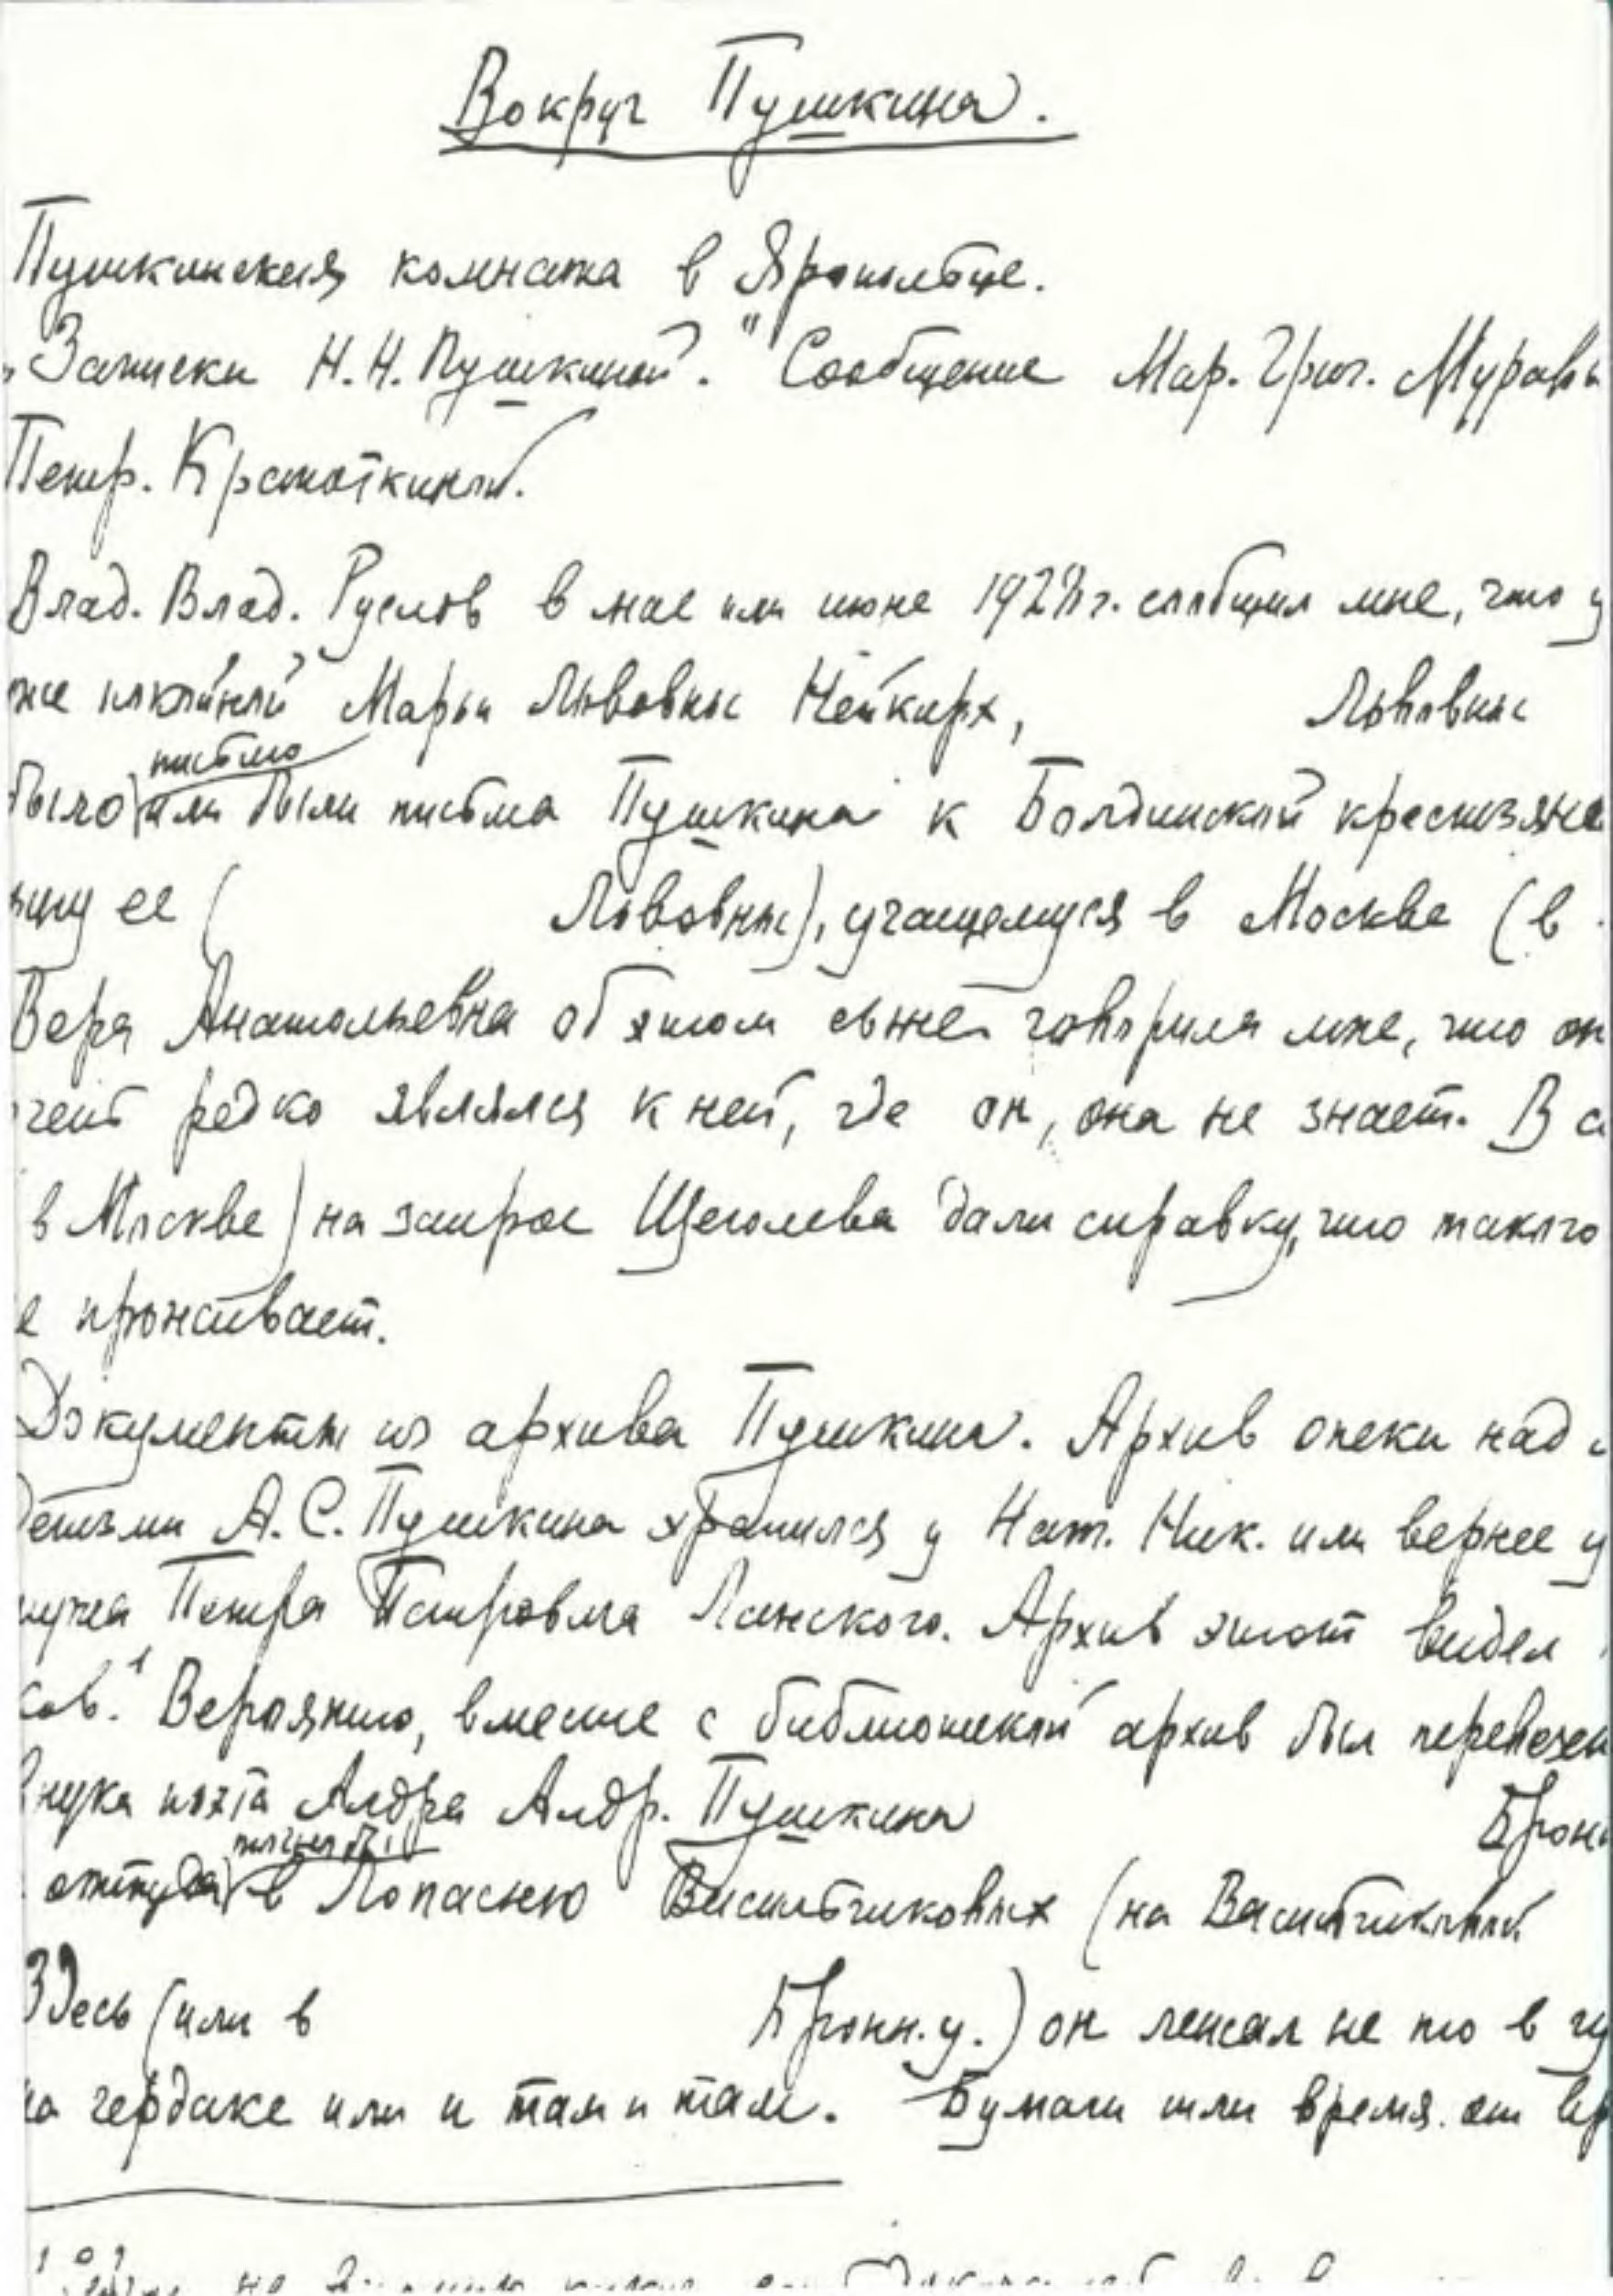 Вокруг Пушкина.
Пушкинская комната в Яропольце.
"Записки Н.Н. Пушкиной." Сообщение Мар. Григ. Муравь
Петр. Кропоткиной.
Влад. Влад. Руслов в мае или июне 1928 г. сообщил мне, что у
же покойной Марьи Львовны Нейкирх, Львовны
письмо
было или были письма Пушкина к Болдинской крестьянк
ыну ее ( Львовны), учащемуся в Москве (в
Вера Анатольевна об этом сыне говорила мне, что он
чень редко являлся к ней, где он, она не знает. В а
в Москве) на запрос Щеголева дали справку, что такого
е проживает.
Документы из архива Пушкина. Архив опеки над
детьми А.С. Пушкина хранился у Нат. Ник. или вернее у
мужа Петра Петровича Ланского. Архив этот видел
ков.¹ Вероятно, вместе с библиотекой архив был перевезен
внука поэта Алдра Алдр. Пушкина Брон
оттуда в Лопасню Васильчиковых (на Васильчиковой
Здесь (или в Бронн. у.) он лежал не то в
на чердаке или и там и там. Бумаги шли время от вр